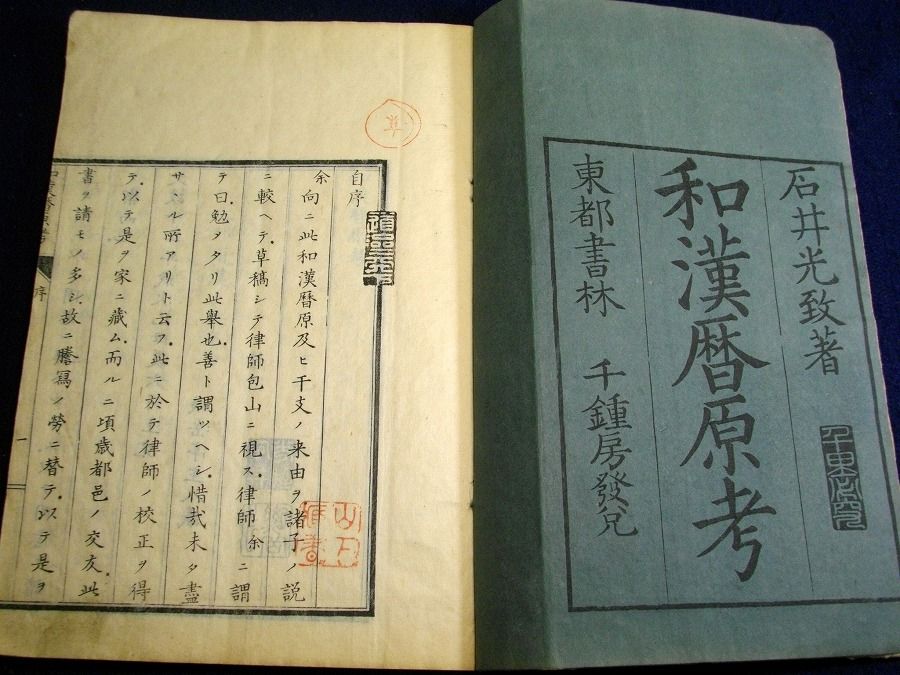 石井光致著
和漢暦原考
東都書林 千鍾房發兌
自序
余向ニ此和漢暦原及ヒ干支ノ来由ヲ諸子ノ説
ニ較ヘテ草稿シテ律師包山ニ視ス律師余ニ謂
テ曰勉タリ此舉也善ト謂ツヘシ惜哉未タ盡
サヽル所アリト云フ此ニ於テ律師ノ校正ヲ得
テ以テ是ヲ家ニ藏ム而ルニ頃歳都邑ノ交友此
書ヲ請モノ多シ故ニ謄寫ノ勞ニ替テ以テ是ヲ
序
一